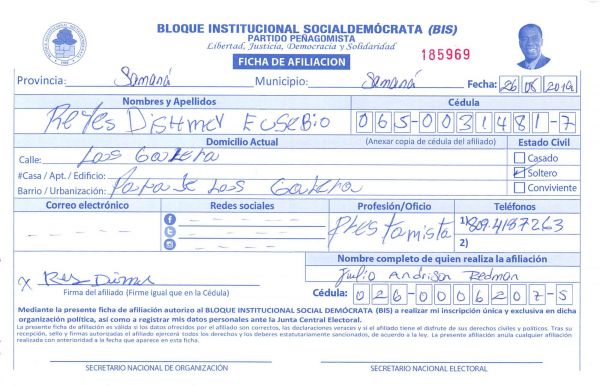 BLOQUE INSTITUCIONAL SOCIALDEMÓCRATA (BIS)
PARTIDO PEÑAGOMISTA
Libertad, Justicia, Democracia y Solidaridad
185969
FICHA DE AFILIACION
Provincia: Samaná Municipio: Samaná Fecha: 26 08 2019
Nombres y Apellidos Cédula
Reyes Dishmey Eusebio 065-0031481-7
Domicilio Actual (Anexar copia de cédula del afiliado) Estado Civil
Calle: Las Galera Casado
#Casa / Apt. / Edificio: Soltero
Barrio / Urbanización: Las Galera Conviviente
Correo electrónico Redes sociales Profesión/Oficio Teléfonos
Prestamista 1) 809.4187263
2)
Nombre completo de quien realiza la afiliación
Julio Andrison Redman
Firma del afiliado (Firme igual que en la Cédula) Cédula: 026-0006207-5
Mediante la presente ficha de afiliación autorizo al BLOQUE INSTITUCIONAL SOCIAL DEMÓCRATA (BIS) a realizar mi inscripción única y exclusiva en dicha
organización política, así como a registrar mis datos personales ante la Junta Central Electoral.
La presente ficha de afiliación es válida si los datos ofrecidos por el afiliado son correctos, las declaraciones veraces y si el afiliado tiene el disfrute de sus derechos civiles y políticos. Tras su
recepción, sello y firmas autorizadas el afiliado ejercerá todos los derechos y los deberes estatutariamente sancionados, de acuerdo a la ley. La presente afiliación anula cualquier afiliación
realizada con anterioridad a la fecha que aparece en esta ficha.
SECRETARIO NACIONAL DE ORGANIZACIÓN SECRETARIO NACIONAL ELECTORAL